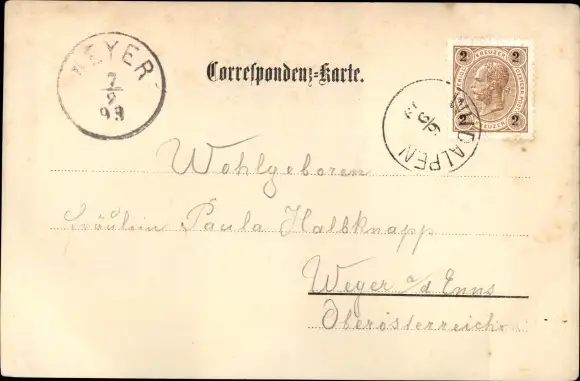 WEYER
7
9
98
Correspondenz-Karte.
2 KREUZER 2
2 KREUZER 2
WILDALPEN
6/9
Wohlgeboren
Fräulein Paula Halbknapp
Weyer a/d Enns
Oberösterreich